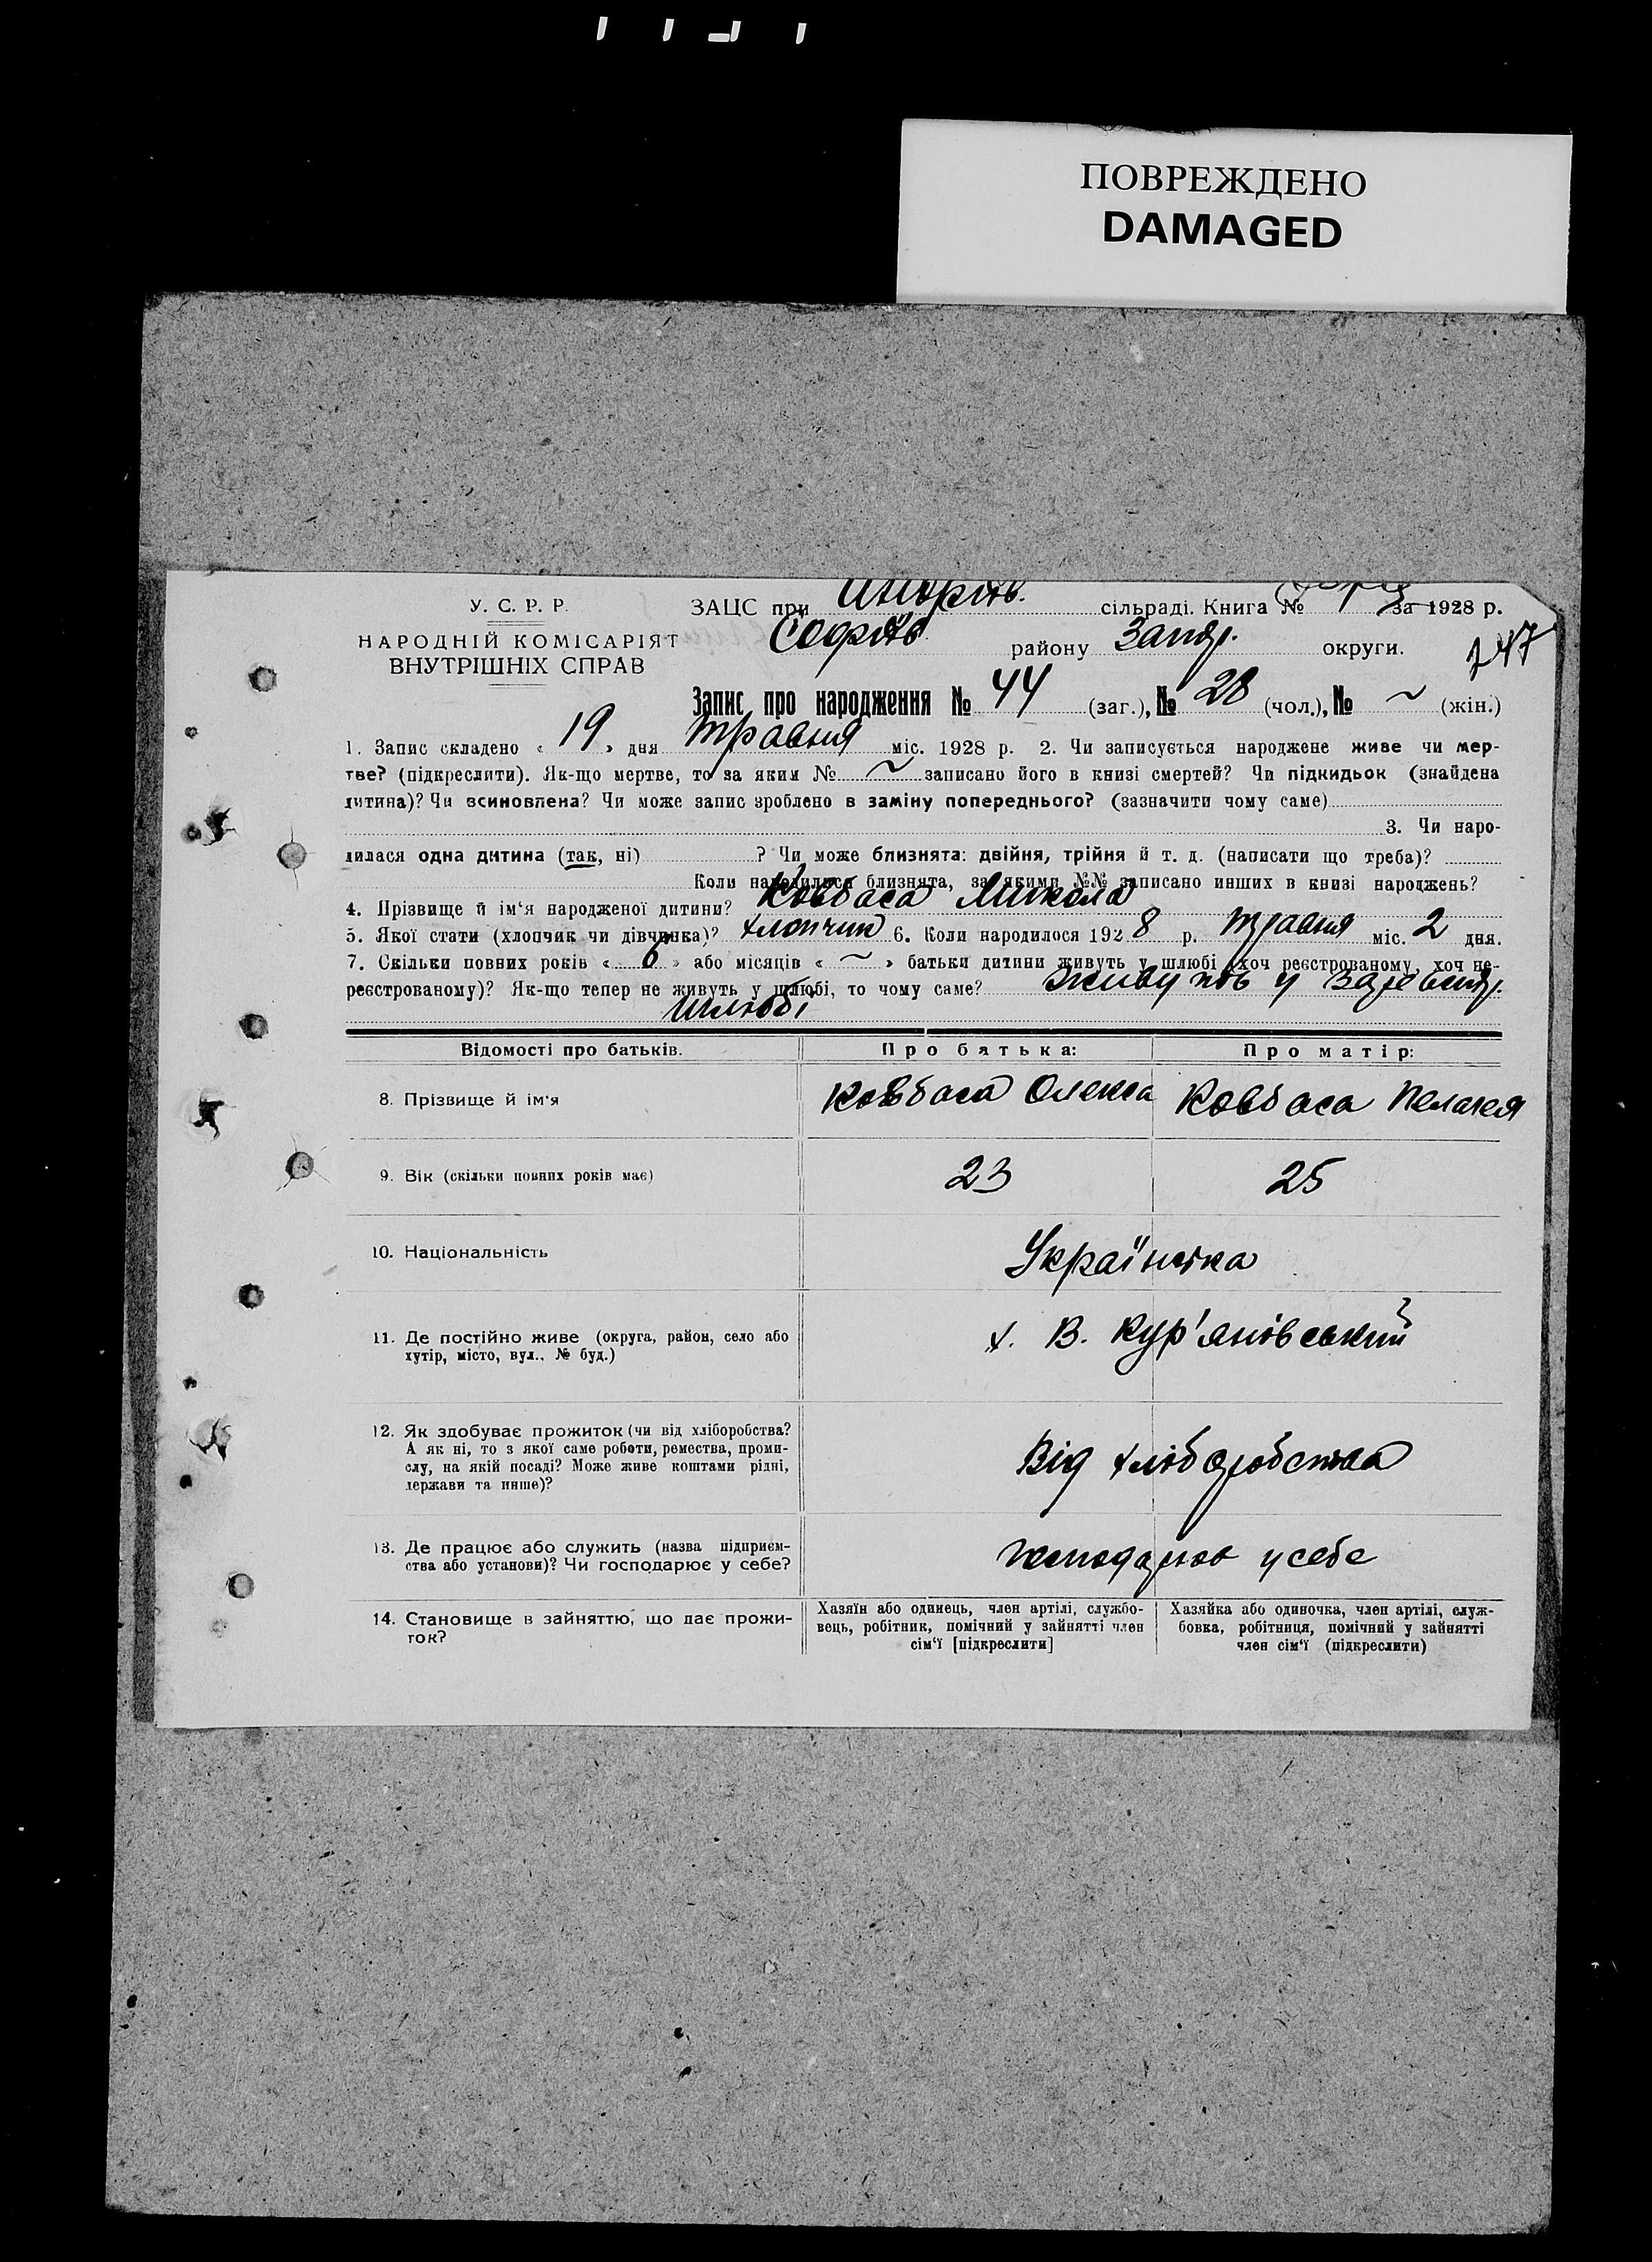 ПОВРЕЖДЕНО
DAMAGED
У. С. Р. Р.
НАРОДНІЙ КОМІСАРІЯТ
ВНУТРІШНІХ СПРАВ
ЗАЦС при сільраді. Книга № 1 за 1928 р.
Софіїв. району Запор. округи.
247
Запис про народження № 44 (заг.), № 28 (чол.), № ~ (жін.)
1. Запис складено « 19 » дня травня міс. 1928 р. 2. Чи записується народжене живе чи мер-
тве? (підкреслити). Як-що мертве, то за яким № ~ записано його в книзі смертей? Чи підкидьок (знайдена
дитина)? Чи всиновлена? Чи може запис зроблено в заміну попереднього? (зазначити чому саме)
3. Чи наро-
дилася одна дитина (так, ні) ? Чи може близнята: двійня, трійня й т. д. (написати що треба)?
Коли народилися близнята, за якими №№ записано инших в книзі народжень?
4. Прізвище й ім'я народженої дитини? Ковбаса Микола
5. Якої стати (хлопчик чи дівчинка)? хлопчик 6. Коли народилося 1928 р. травня міс. 2 дня.
7. Скільки повних років « 6 » або місяців « ~ » батьки дитини живуть у шлюбі (хоч реєстрованому, хоч не-
реєстрованому)? Як-що тепер не живуть у шлюбі, то чому саме? у
шлюбі
Відомості про батьків.
Про батька:
Про матір:
8. Прізвище й ім'я
Ковбаса Олекса
Ковбаса Пелагея
9. Вік (скільки повних років має)
23
25
10. Національність
Українська
11. Де постійно живе (округа, район, село або
хутір, місто, вул., № буд.)
х. В. Кур'янівський
12. Як здобуває прожиток (чи від хліборобства?
А як ні, то з якої саме роботи, ремества, проми-
слу, на якій посаді? Може живе коштами рідні,
держави та инше)?
Від хліборобства
13. Де працює або служить (назва підприєм-
ства або установи)? Чи господарює у себе?
господарює у себе
14. Становище в зайняттю, що дає прожи-
ток?
Хазяїн або одинець, член артілі, службо-
вець, робітник, помічний у зайнятті член
сім'ї [підкреслити]
Хазяйка або одиночка, член артілі, служ-
бовка, робітниця, помічний у зайнятті
член сім'ї (підкреслити)